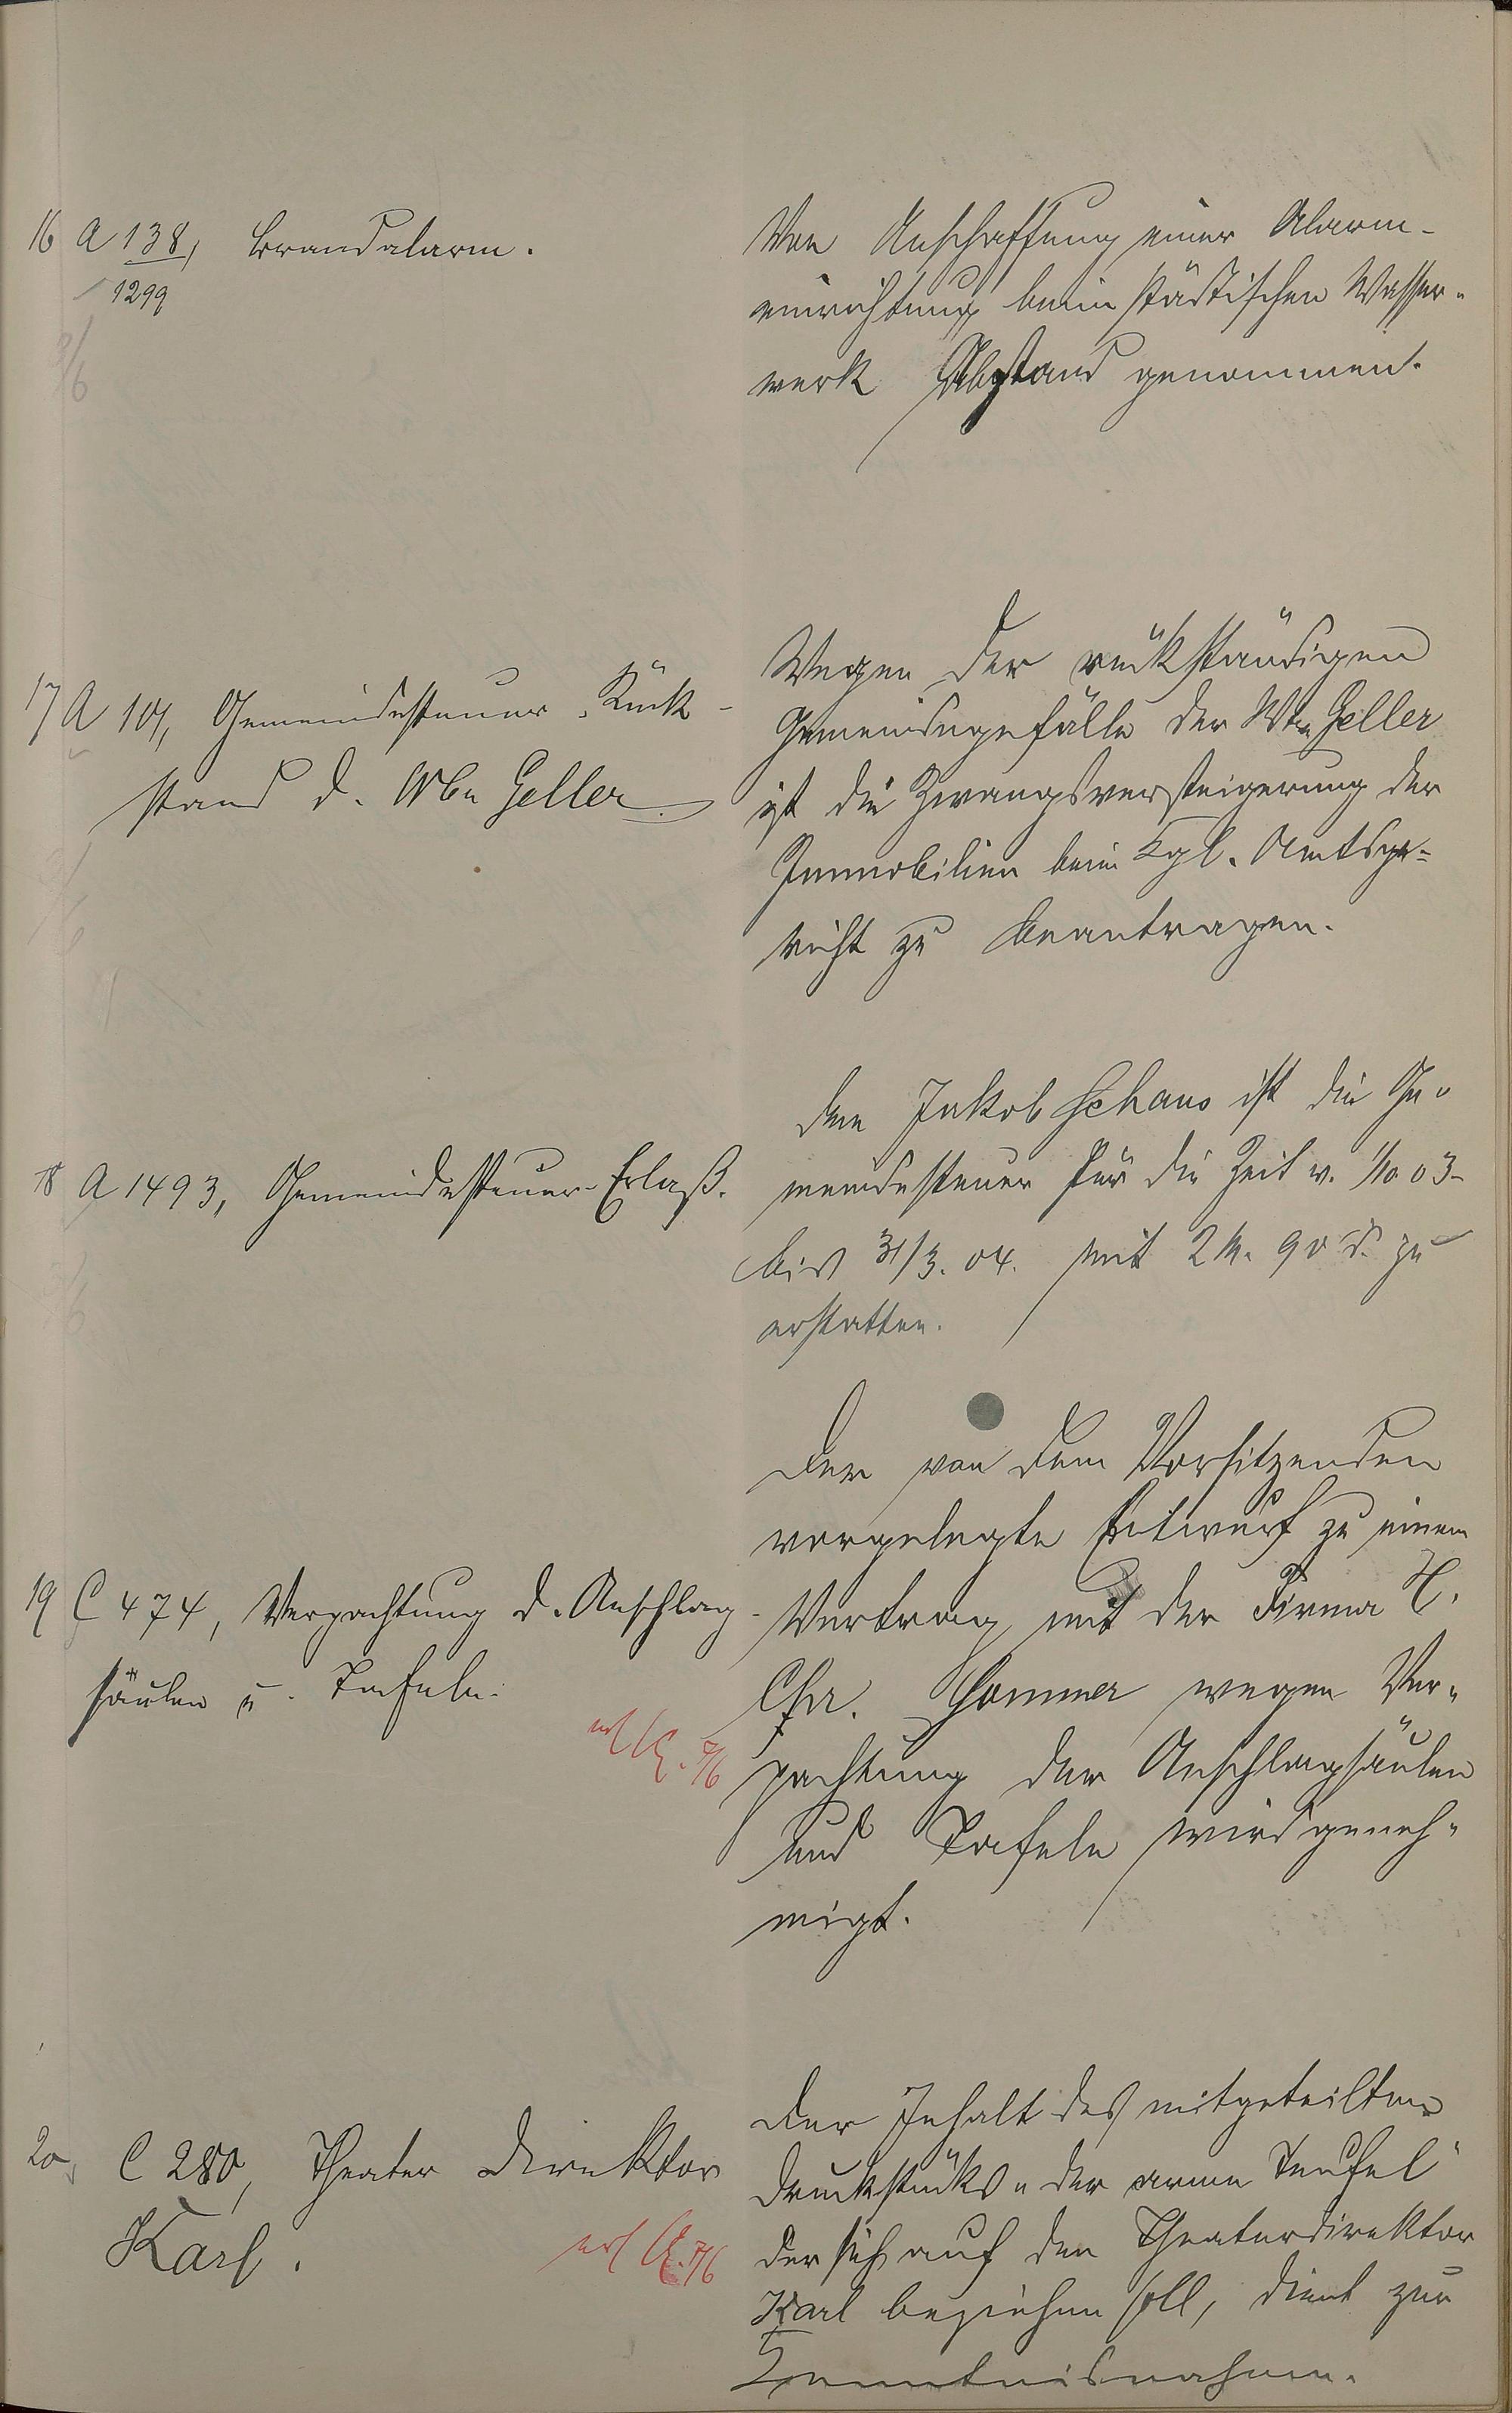 16 A 138, Brandalarm.
1299
Von Anschaffung einer Alarm-
einrichtung beim städtischen Wasser-
werk Abstand genommen.
17 A 101, Gemeindesteuer-Rück-
stand d. Wbe Geller
Wegen der rückständigen
Gemeindegefälle der Wtw Geller
ist die Zwangsversteigerung der
Immobilien beim Kgl. Amtsge-
richt zu beantragen.
18 A 1493, Gemeindesteuer-Erlaß.
Dem Jakob Schaus ist die Ge-
meindesteuer für die Zeit v. 1/10 03-
bis 31/3. 04. mit 2 M. 90 d. zu
erstatten.
19 C 474, Verpachtung d. Anschlag-
säulen u. Tafeln.
erl 7/6
Der von dem Vorsitzenden
vorgelegte Entwurf zu einem
Vertrag mit der Firma H.
Chr. Sommer wegen Ver-
pachtung der Anschlagsäulen
und Tafeln wird geneh-
migt.
20, C 280, Theater Direktor
Karl.
erl 7/6
Der Inhalt des mitgeteilten
Druckstücks "der arme Teufel"
der sich auf den Theaterdirektor
Karl beziehen soll, dient zur
Kenntnisnahme.